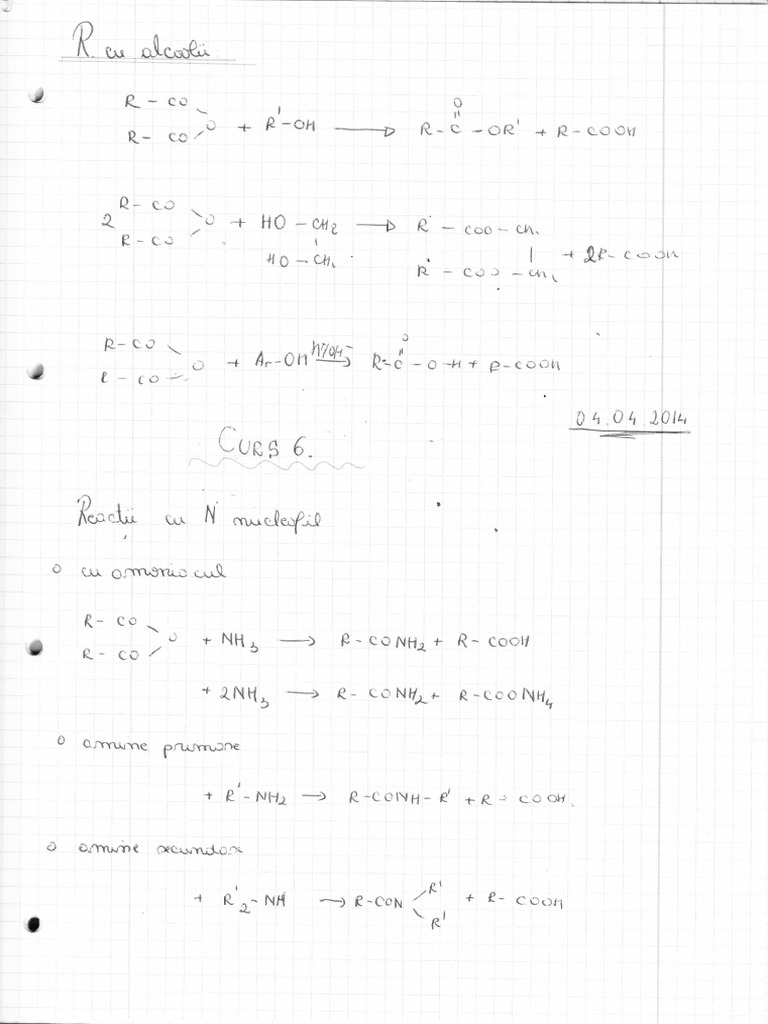 R. cu alcoolii
R - CO
O + R' - OH → R - C - OR' + R - COOH
O
R - CO
2 R - CO
O + HO - CH2 → R' - COO - CH2
R - CO
HO - CH2
R' - COO - CH2 + 2R - COOH
R - CO
O + Ar - OH → R - C - O - H + R - COOH
O
R - CO
04.04.2014
CURS 6.
Reacții cu N nucleofil
o cu amoniacul
R - CO
O + NH3 → R - CONH2 + R - COOH
R - CO
+ 2NH3 → R - CONH2 + R - COONH4
o amine primare
+ R' - NH2 → R - CONH - R' + R - COOH
o amine secundare
+ R'2 - NH → R - CON R' R' + R - COOH